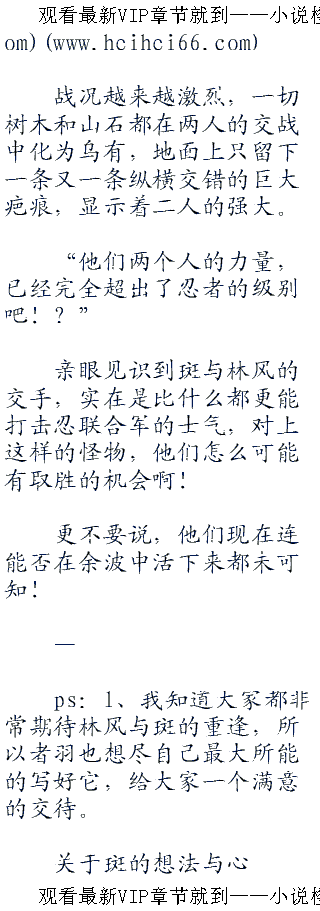 观看最新VIP章节就到——小说
om)(www.hcihci66.com)
战况越来越激烈，一切
树木和山石都在两人的交战
中化为乌有，地面上只留下
一条又一条纵横交错的巨大
疤痕，显示着二人的强大。
“他们两个人的力量，
已经完全超出了忍者的级别
吧！？”
亲眼见识到斑与林风的
交手，实在是比什么都更能
打击忍联合军的士气，对上
这样的怪物，他们怎么可能
有取胜的机会啊！
更不要说，他们现在连
能否在余波中活下来都未可
知！
—
ps：1、我知道大家都非
常期待林风与斑的重逢，所
以者羽也想尽自己最大所能
的写好它，给大家一个满意
的交待。
关于斑的想法与心
观看最新VIP章节就到——小说